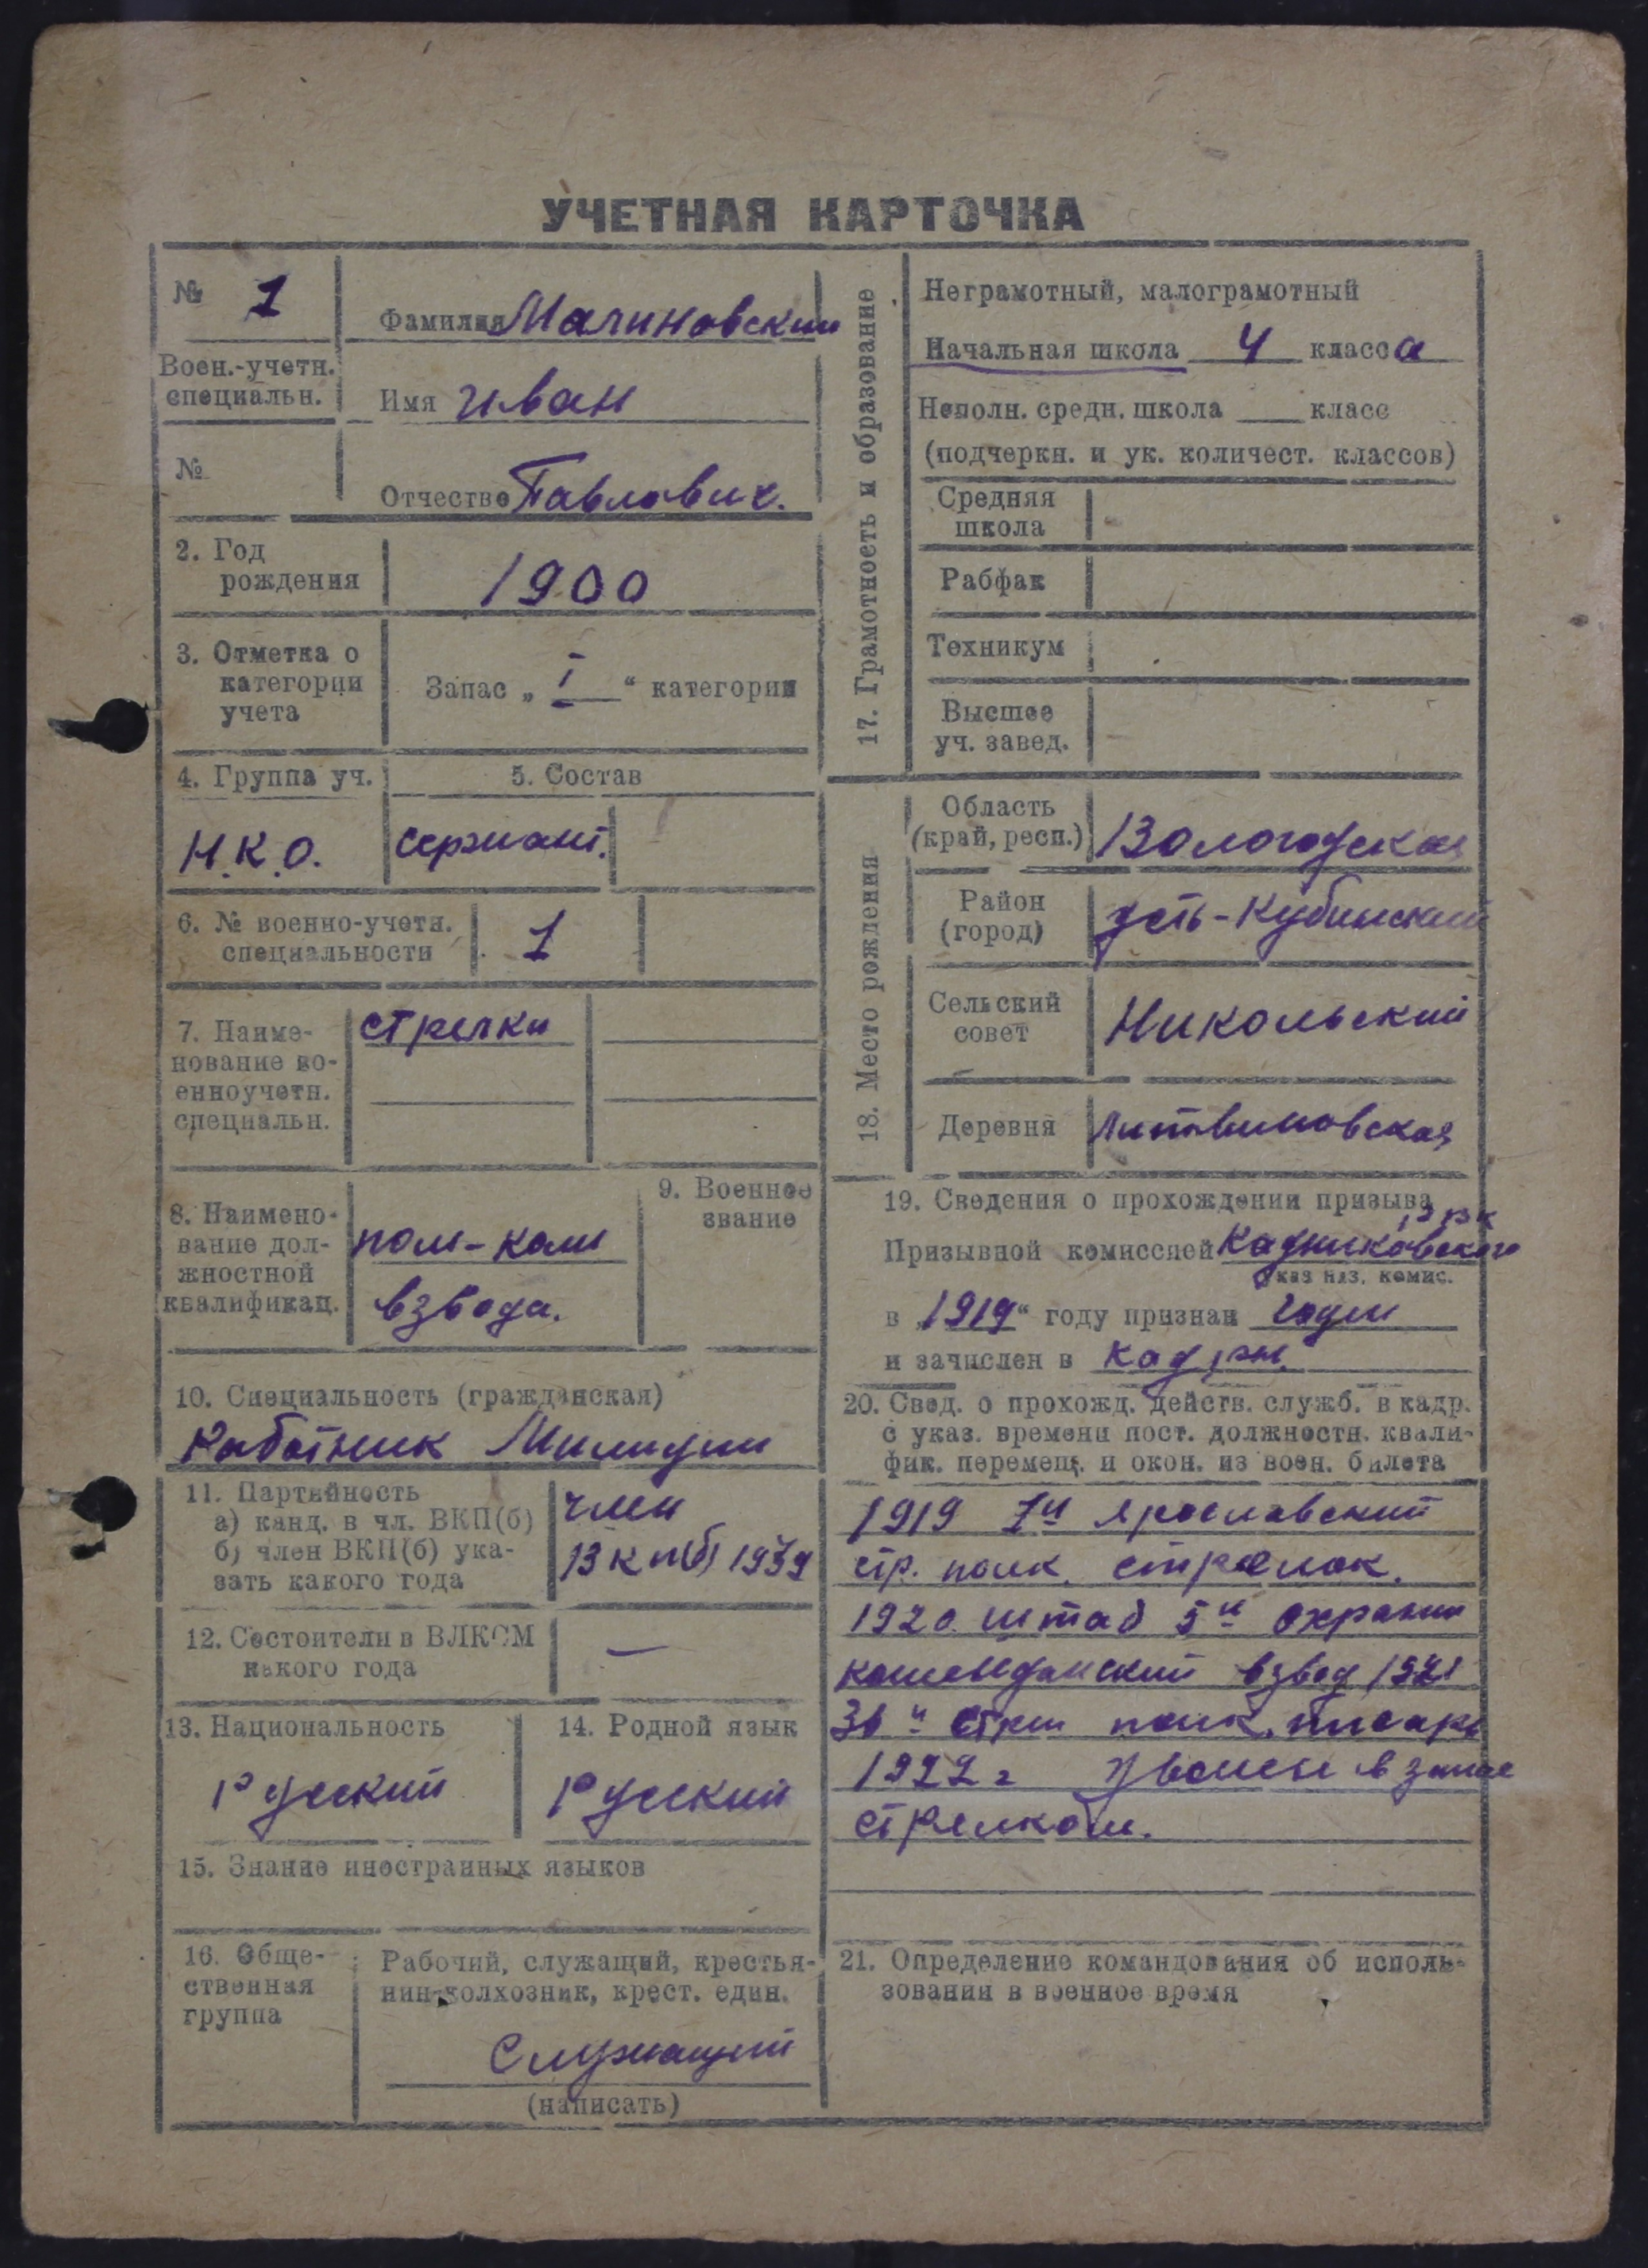 УЧЕТНАЯ КАРТОЧКА
№ 1
Воен.-учетн.
специальн.
№
Фамилия Малиновский
Имя Иван
Отчество Павлович.
2. Год
рождения
1900
3. Отметка о
категории
учета
Запас „ I “ категории
4. Группа уч.
Н.К.О.
5. Состав
сержант.
6. № военно-учетн.
специальности
1
7. Наиме-
нование во-
енноучетн.
специальн.
стрелки
8. Наимено-
вание дол-
жностной
квалификац.
пом-ком
взвода.
9. Военное
звание
10. Специальность (гражданская)
Работник Милиции
11. Партийность
а) канд. в чл. ВКП(б)
б) член ВКП(б) ука-
зать какого года
член
ВКП(б) 1939
12. Состоители в ВЛКСМ
какого года
—
13. Национальность
Русский
14. Родной язык
Русский
15. Знание иностранных языков
16. Обще-
ственная
группа
Рабочий, служащий, крестья-
нин-колхозник, крест. един.
Служащий
(написать)
17. Грамотность и образование
Неграмотный, малограмотный
Начальная школа 4 класса
Неполн. средн. школа ___ класс
(подчеркн. и ук. количест. классов)
Средняя
школа
Рабфак
Техникум
Высшее
уч. завед.
18. Место рождения
Область
(край, респ.)
Вологодская
Район
(город)
Усть-Кубинский
Сельский
совет
Никольский
Деревня
Литвиновская
19. Сведения о прохождении призыва
РВК
Призывной комиссией Кадниковского
Указ наз. комис.
в „1919“ году признан годен
и зачислен в кадры.
20. Свед. о прохожд. действ. служб. в кадр.
с указ. времени пост. должностн. квали-
фик. перемещ. и окон. из воен. билета
1919 1й Ярославский
стр. полк. стрелок.
1920. штаб 5й охраны
комендантский взвод 1921
полк. писарь
1922 г уволен в запас
стрелком.
21. Определение командования об исполь-
зовании в военное время